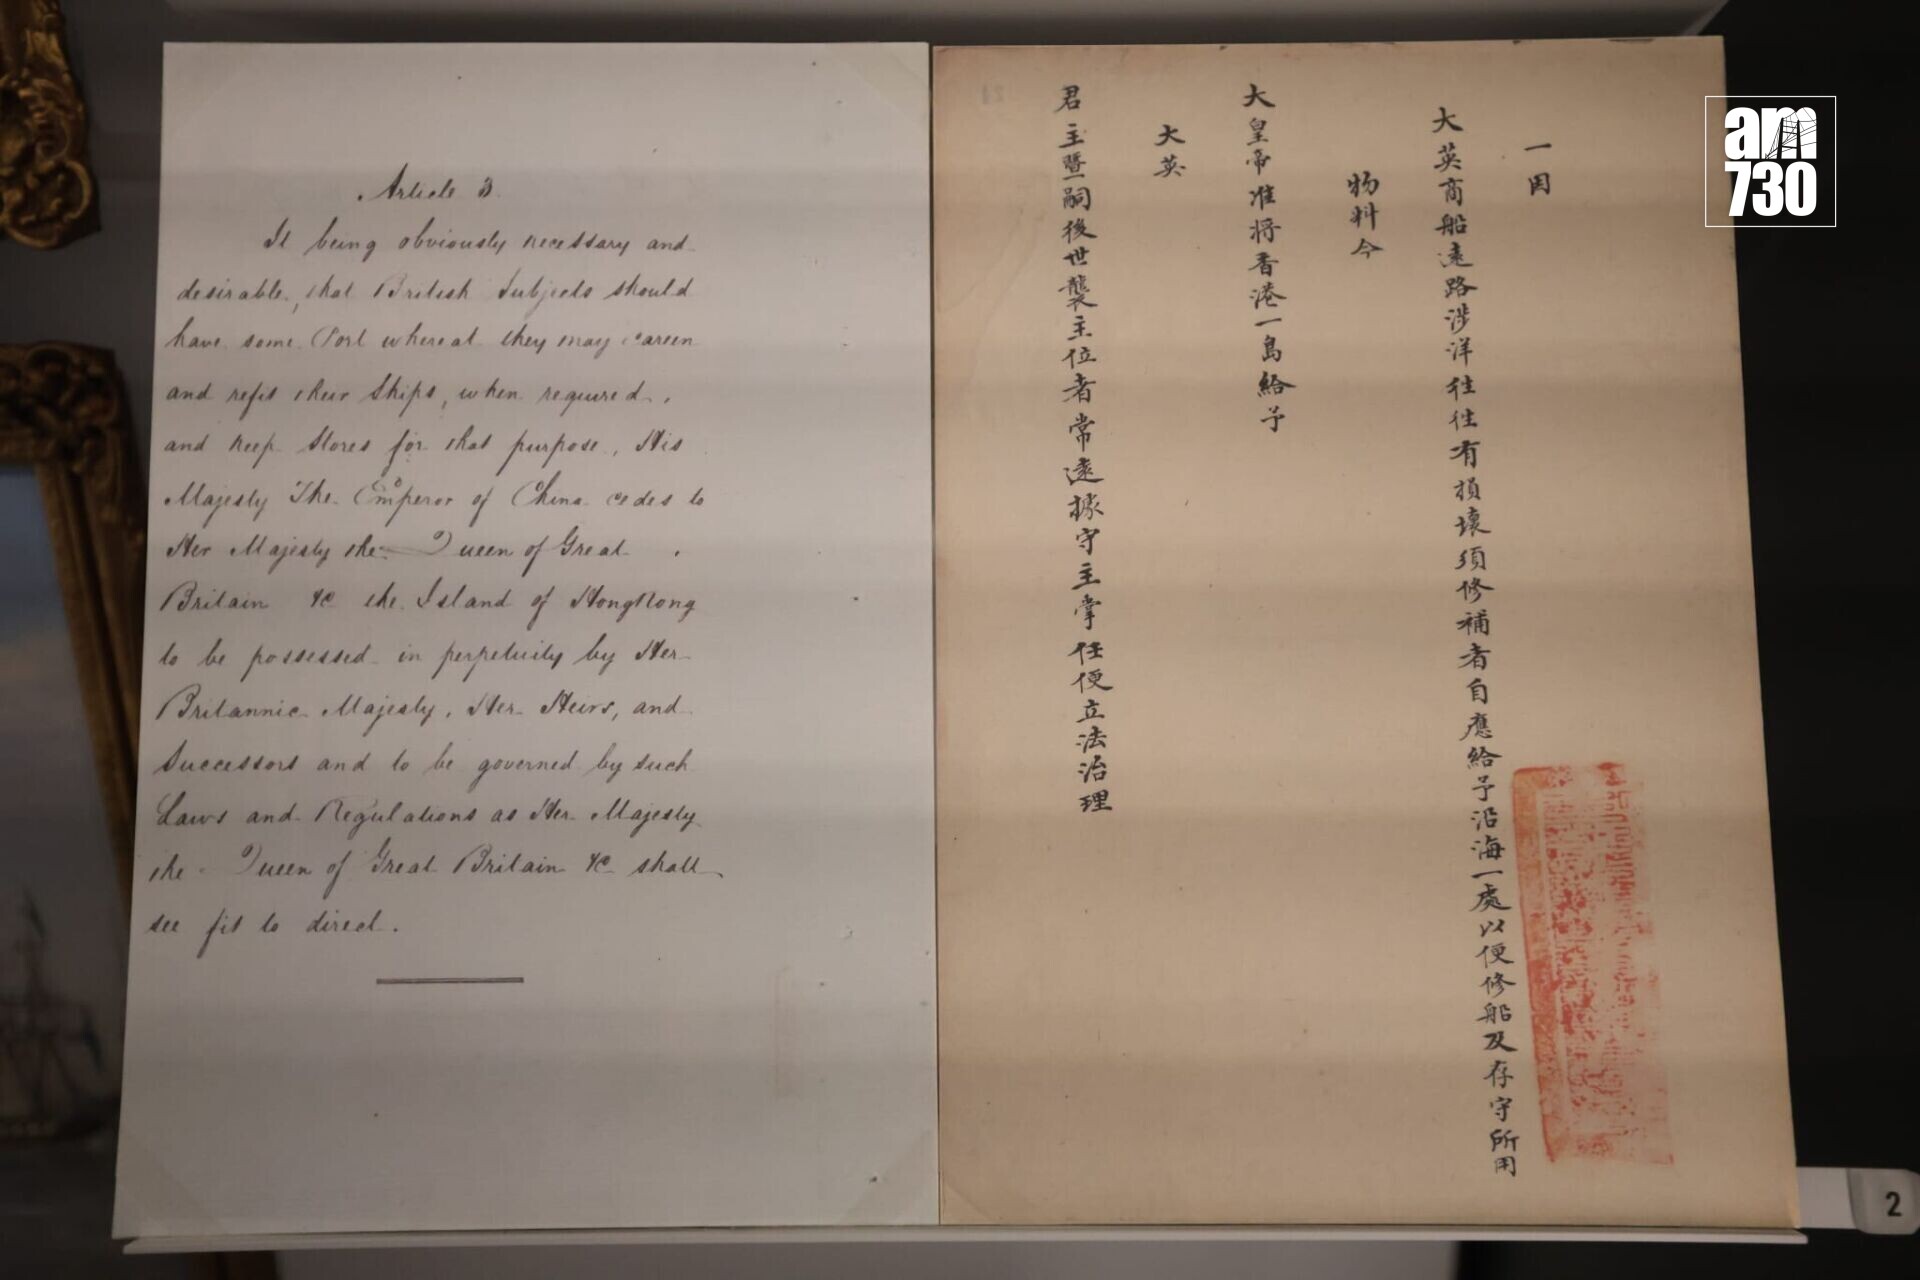 Article 3.
It being obviously necessary and
desirable, that British Subjects should
have some Port whereat they may careen
and refit their Ships, when required,
and keep Stores for that purpose, His
Majesty The Emperor of China cedes to
Her Majesty the Queen of Great
Britain &c the Island of HongKong
to be possessed in perpetuity by Her
Britannic Majesty, Her Heirs, and
Successors and to be governed by such
Laws and Regulations as Her Majesty
the Queen of Great Britain &c shall
see fit to direct.
一因
大英商船遠路涉洋往往有損壞須修補者自應給予沿海一處以便修船及存守所用
物料今
大皇帝准將香港一島給予
大英
君主暨嗣後世襲主位者常遠據守主掌任便立法治理
am
730
2